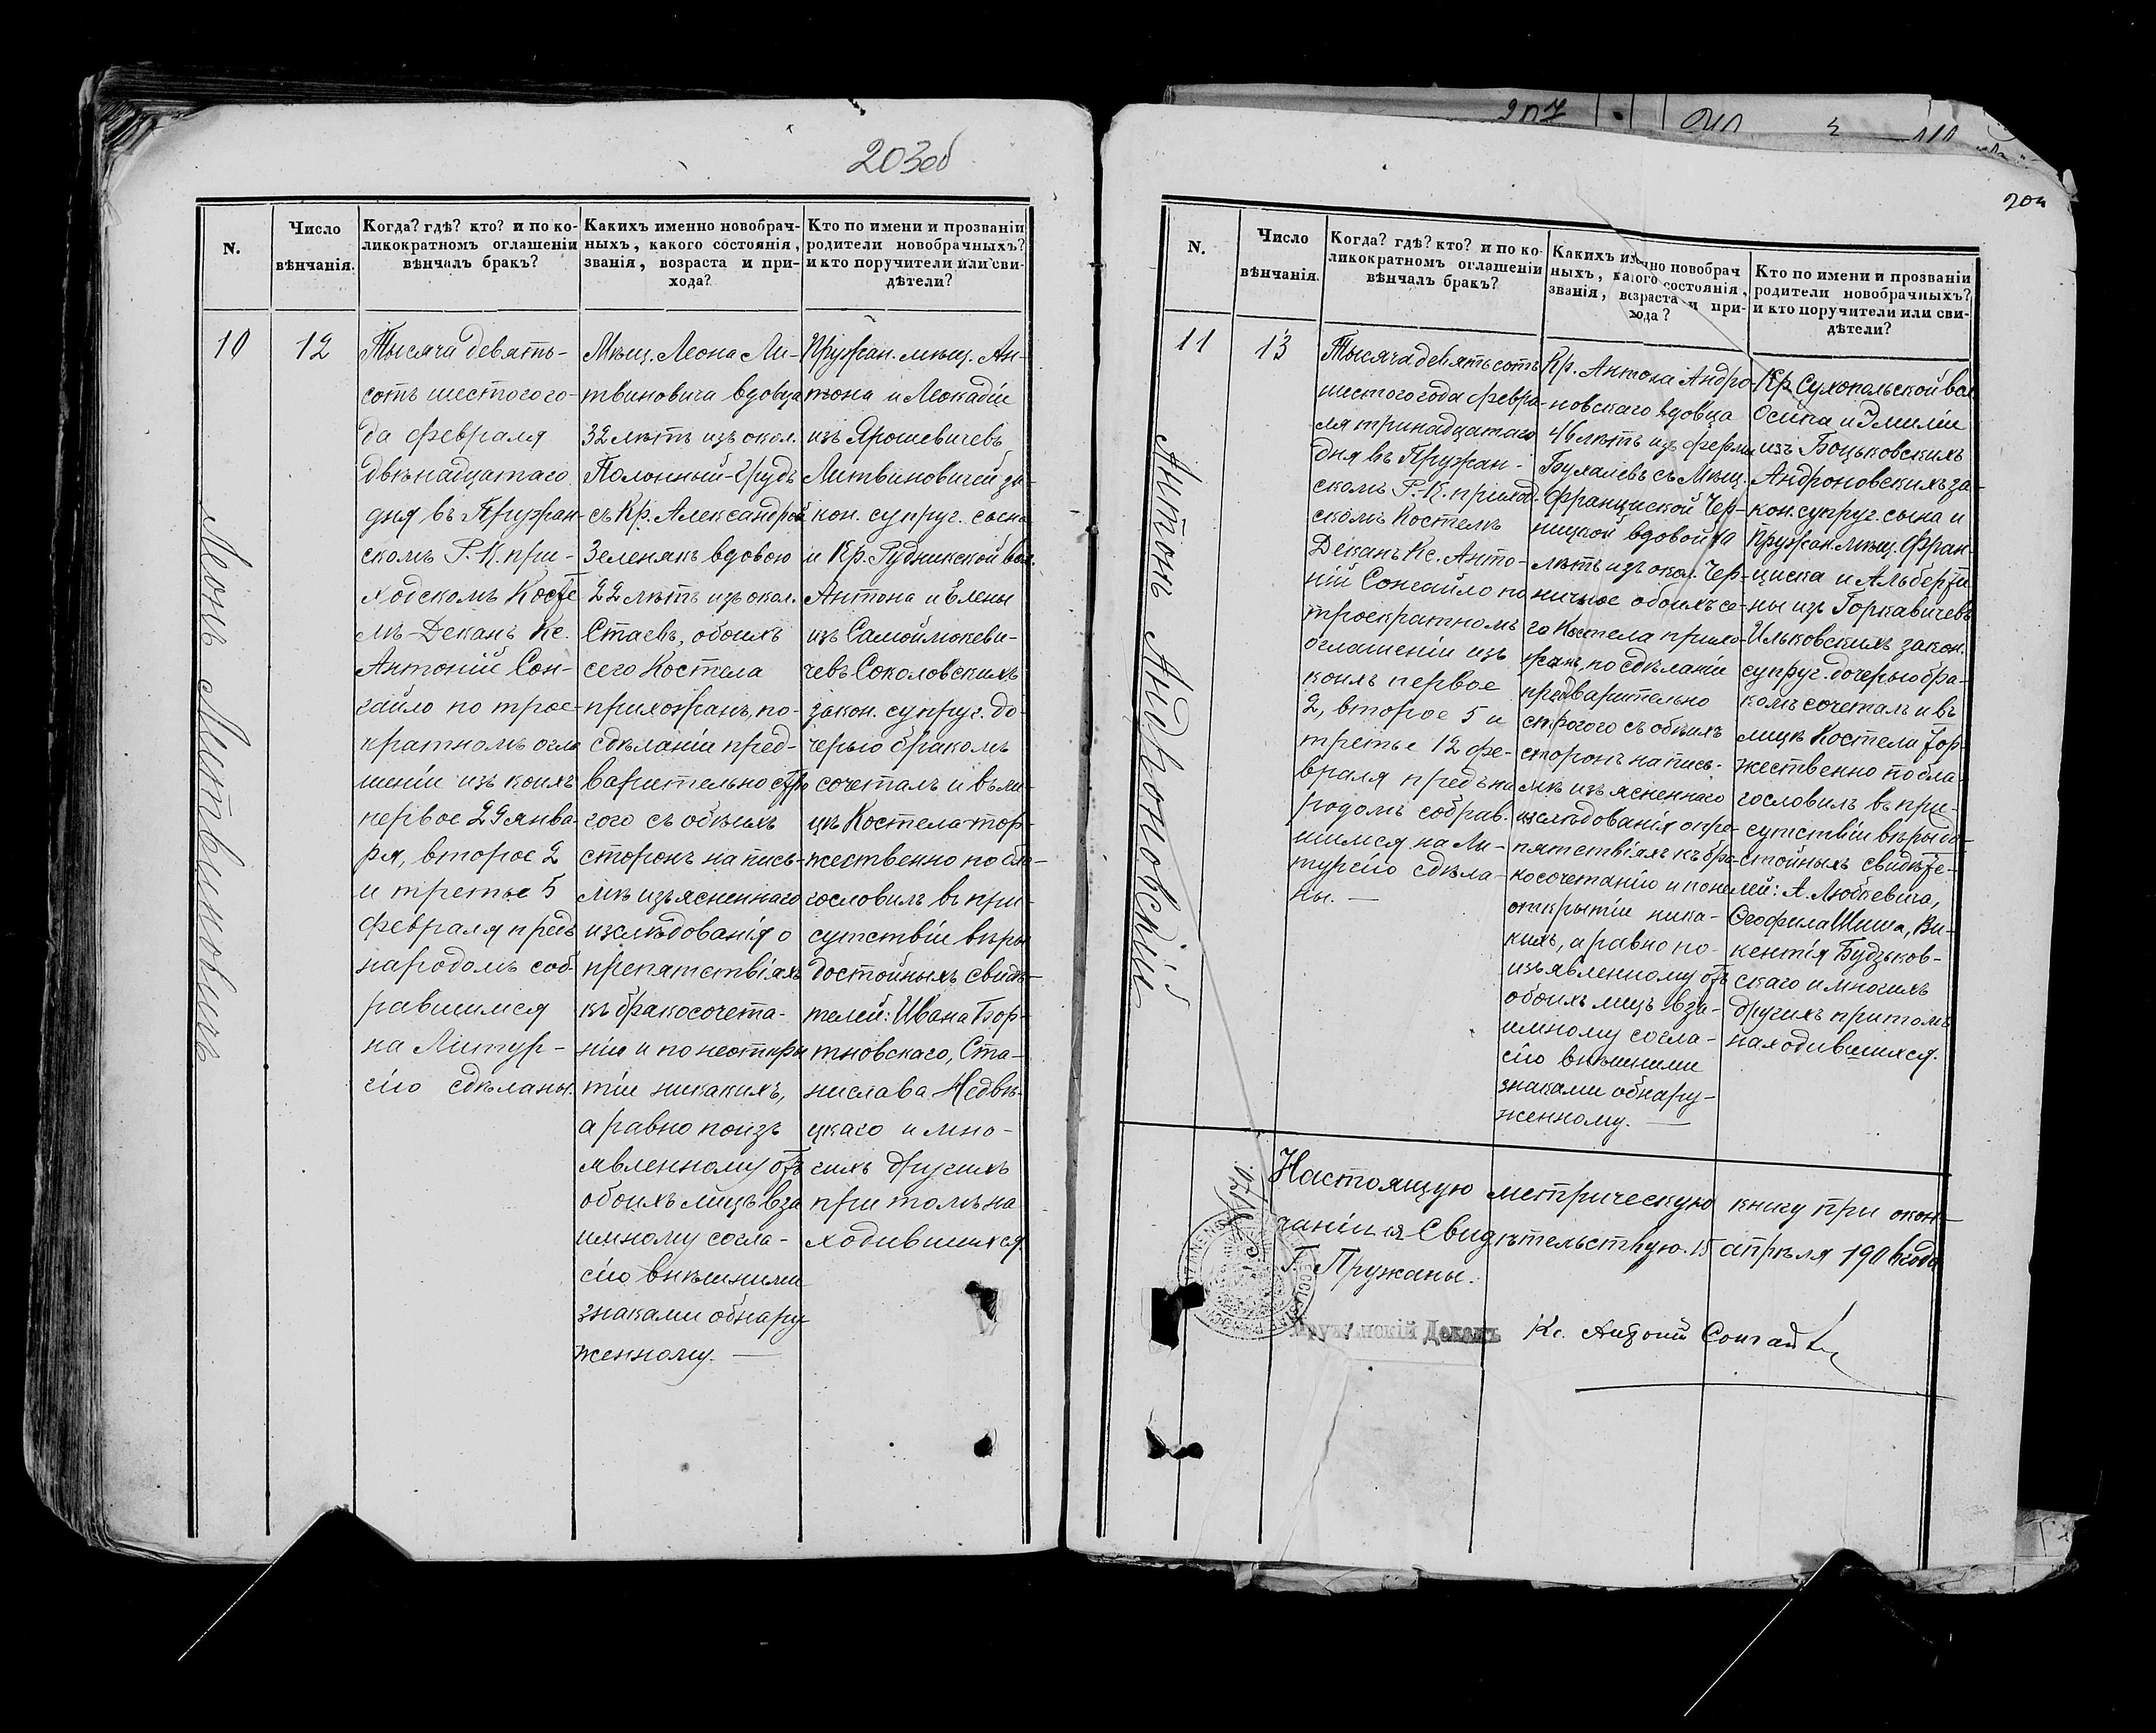 203об
N.
Число
вѣнчанія.
Когда? гдѣ? кто? и по ко-
ликократномъ оглашеніи
вѣнчалъ бракъ?
Какихъ именно новобрач-
ныхъ, какого состоянія,
званія, возраста и при-
хода?
Кто по имени и прозванію
родители новобрачныхъ?
и кто поручители или сви-
дѣтели?
10
12
Леонъ Литвиновичъ
Тысяча девять-
сотъ шестого го-
да февраля
двѣнадцатаго
дня въ Пружан-
скомъ Р. К. при-
ходскомъ Косте
лѣ Деканъ Кс.
Антоній Сон-
гайло по трое-
кратномъ огла
шеніи изъ коихъ
первое 29 янва-
ря, второе 2
и третье 5
февраля предъ
народомъ соб-
равшимся
на Литур-
гію сдѣланы.
Мѣщ. Леона Ли-
твиновича вдовца
32 лѣтъ изъ окол.
Полонный-Грудъ
съ Кр. Александрой
Зеленякъ вдовою
22 лѣтъ изъ окол.
Стаевъ, обоихъ
сего Костела
прихожанъ, по-
сдѣланіи пред-
варительно стро
гого съ обѣихъ
сторонъ на пись-
мѣ изъясненнаго
изслѣдованія о
препятствіяхъ
къ бракосочета-
нію и по неоткры
тіи никакихъ,
а равно по изъ
явленному отъ
обоихъ лицъ вза
имному согла-
сію внѣшними
знаками обнару
женному. —
Пружан. мѣщ. Ан-
тона и Леокадіи
изъ Ярошевичевъ
Литвиновичей за-
кон. супруг. сына
и Кр. Рудникской вол.
Антона и Елены
изъ Самойлюкеви-
чевъ Соколовскихъ
закон. супруг. до-
черью бракомъ
сочеталъ и въ ли-
цѣ Костела тор-
жественно по бла-
гословилъ въ при-
сутствіи вѣры
достойныхъ свидѣ-
телей: Ивана Бор-
тновскаго, Ста-
нислава Недвѣ-
цкаго и мно-
гихъ другихъ
при томъ на
ходившихся
204
N.
Число
вѣнчанія.
Когда? гдѣ? кто? и по ко-
ликократномъ оглашеніи
вѣнчалъ бракъ?
Какихъ именно новобрач
ныхъ, какого состоянія,
званія, возраста и при-
хода?
Кто по имени и прозванію
родители новобрачныхъ?
и кто поручители или сви-
дѣтели?
11
13
Антонъ Андроновскій
Тысяча девятьсотъ
шестого года февра-
ля тринадцатаго
дня въ Пружан-
скомъ Р. К. приход-
скомъ Костелѣ
Деканъ Кс. Анто-
ній Сонгайло по
троекратномъ
оглашеніи изъ
коихъ первое
2, второе 5 и
третье 12 фе-
враля предъ на
родомъ собрав-
шимся на Ли-
тургію сдѣла-
ны. —
Кр. Антона Андро-
новскаго вдовца
46 лѣтъ изъ фермы
съ Мѣщ.
Франциской Чер-
ницкой вдовой
лѣтъ изъ окол. Чер-
ничное обоихъ се-
го Костела прихо-
жанъ, по сдѣланіи
предварительно
строгого съ обѣихъ
сторонъ на пись-
мѣ изъясненнаго
изслѣдованія о пре-
пятствіяхъ къ бра-
косочетанію и по не
открытіи ника-
кихъ, а равно по
изъявленному отъ
обоихъ лицъ вза-
имному согла-
сію внѣшними
знаками обнару-
женному. —
Кр. Сухопольской вол.
Осипа и Эмиліи
изъ Боцьковскихъ
Андроновскихъ за-
кон. супруг. сына и
Пружан. мѣщ. Фран-
циска и Альберти
ны изъ Горкавичевъ
Ильковскихъ закон.
супруг. дочерью бра-
комъ сочеталъ и въ
лицѣ Костела тор-
жественно по бла-
гословилъ въ при-
сутствіи вѣры до-
стойныхъ свидѣте-
лей: А. Любоевича,
Ѳеофила Шиша, Ви-
кентія Будзьков-
скаго и многихъ
другихъ притомъ
находившихся.
Настоящую метрическую книгу при окон-
чаніи ея Свидѣтельствую. 15 Апрѣля 1906 года
Г. Пружаны.
Пружанскій Деканъ Кс. Антоній Сонгайло